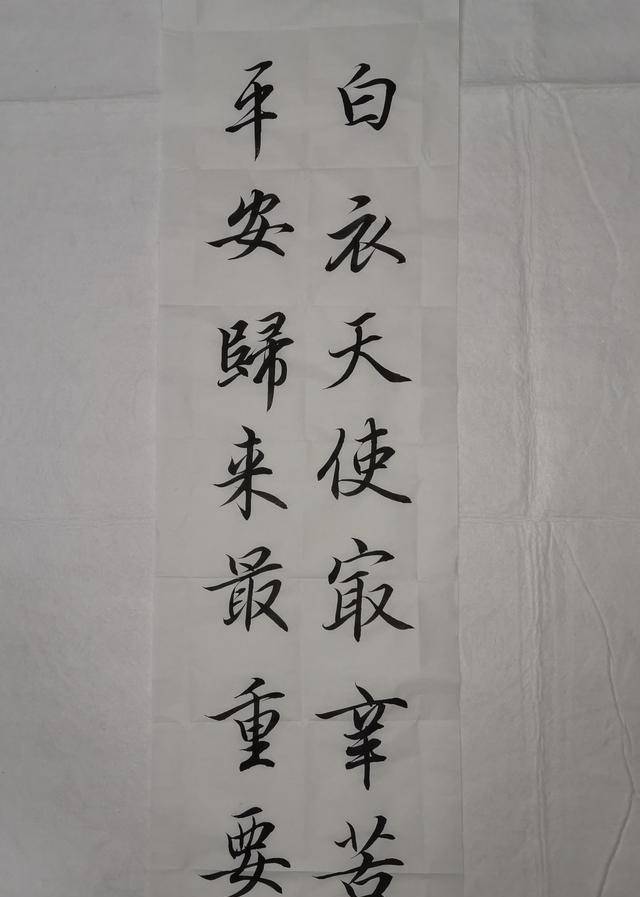 白衣天使寂辛苦
平安歸来最重要